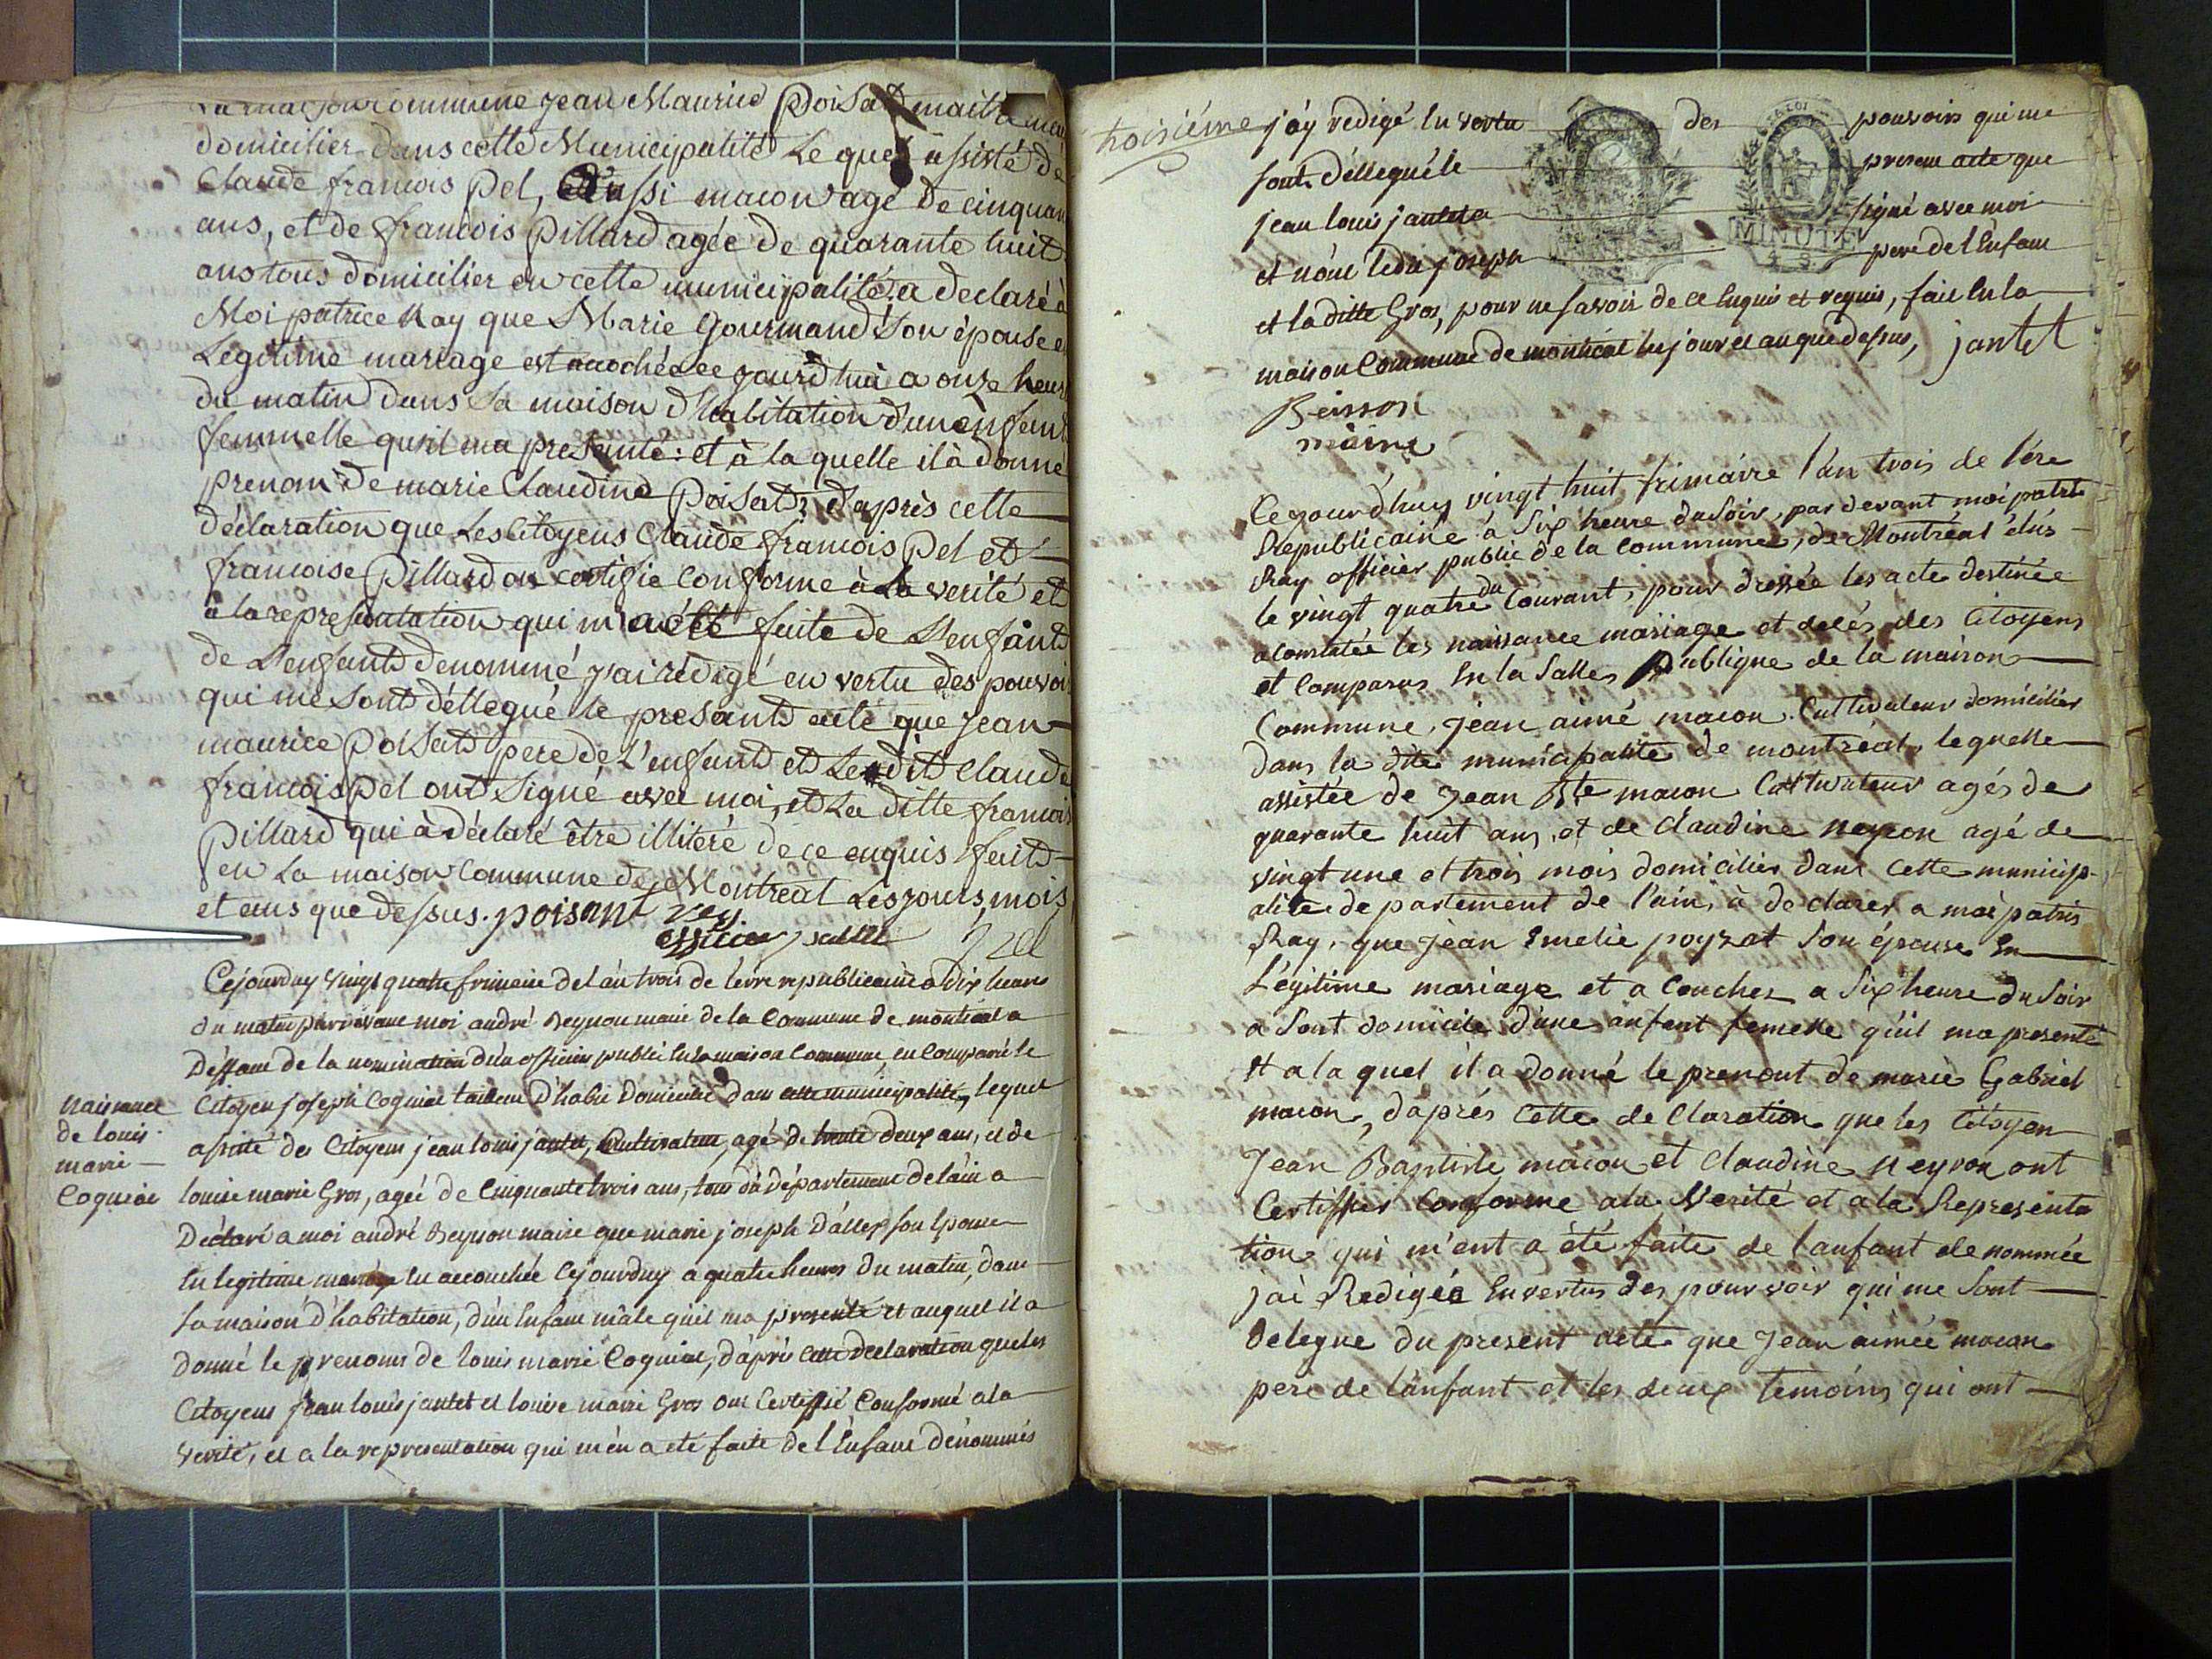 La maison Commune Jean Maurice Poisat maitre
domicilier dans cette Municipalité Le quel assisté de
Claude francois Pel, Aussi macon agé De cinquan
ans, et de francois Pillard agée de quarante huit
ans tous domicilier en cette municipalité, a declaré à
Moi patrice Ray que Marie Gourmand Son épouse e
Legitime mariage est acochée ce jourd'hui a onze heur
du matin dans Sa maison d'habitation d'un enfent
femmelle qu'il ma presenté : et à la quelle il à donné
prenom de marie Claudine Poisat, d'après cette
déclaration que Les Citoyens Claude francois Pel et
francoise Pillard on certifie conforme à La verité et
à la representation qui m'a été faite de L'enfant
de L'enfant denommé j'ai rédigé en vertu des pouvoi
qui me Sont déllegué le présent acte que Jean
maurice Poisat pere de L'enfant et Le dit Claude
francois Pel ont Signé avec moi, et La ditte francois
Pillard qui à déclaré être illiteré de ce enquis fait
en La maison Commune de Montreal Les jours, mois
et ans que dessus. poisant Rey
officier
Cejourduy vingt quatre frimaire de l'an trois de l'erre republicaine a dix heures
du matin pardevant moi andré Beysson maire de la Commune de montréal a
Déffaut de la nomination d'un officier public en la maison Commune, en Comparu le
Citoyen joseph Coguiat tailleur d'habit Domicilié dans cette municipalité, lequel
assisté des Citoyens jean louis jantet, Cultivateur, agé de trente deux ans, et de
louise marie Gros, agée de Cinquante trois ans, tous du département de l'ain a
Déclaré a moi andré Beysson maire que marie joseph Dallex son Epouse
en legitime mariage en accouchée Cejourduy a quatre heures du matin, dans
sa maison d'habitation, d'un Enfant mâle qu'il ma presenté et auquel il a
donné le prenoms de louis marie Coguiat, d'après cette declaration que les
Citoyens jean louis jantet et louise marie Gros ont Certiffié Conforme a la
verité, et a la representation qui m'en a été faite de l'Enfant dénommés
Naissance
de louis
marie
Coguiat
troisiéme
j'ay redigé En vertu des pouvoirs qui me
sont déllegué le present acte que
jean louis jantet a signé avec moi
et non ledit joseph pere de l'Enfant
MINUTE
et la ditte Gros, pour ne savoir de ce Enquis et requis, fait En la
maison Commune de montréal les jour et an que dessus, jantet
Beisson
maire
Cejourd'huy vingt huit frimaire l'an trois de l'ére
Republicaine à Six heure du Soir, par devant moi patris
Ray officier public de la Commune, de Montréal élus
le vingt quatre du Courant, pour dressée les acte destinée
a constatée les naissance mariage et decés des Citoyens
et Comparus En la Salle Publique de la maison
Commune, Jean aimé macon Cultivateur domicilier
dans la dite municipalité de montréal, lequelle
assistée de Jean Bte macon Cultivateur agés de
quarante huit ans, et de Claudine Neyron agé de
vingt une et trois mois domicilies dans cette municip-
alité departement de l'ain, à declarer a moi patris
Ray, que Jean Emelie poyzat Son épouse En
Légitime mariage et a Coucher a Six heure du Soir
a Sont domicile d'une anfant femelle qu'il ma presenté
Et a la quel il a donné le prenont de marie Gabriel
macon, d'aprés cette declaration que les Citoyen
Jean Baptiste macon et Claudine Neyron ont
Certiffier Conforme a la Verité et a la Representa
tion qui m'ent a été faite de l'anfant denommée
j'ai Redigée En vertus des pourvoir qui me Sont
delegue du present acte que Jean aimée macon
pere de l'anfant et les deux temoins qui ont